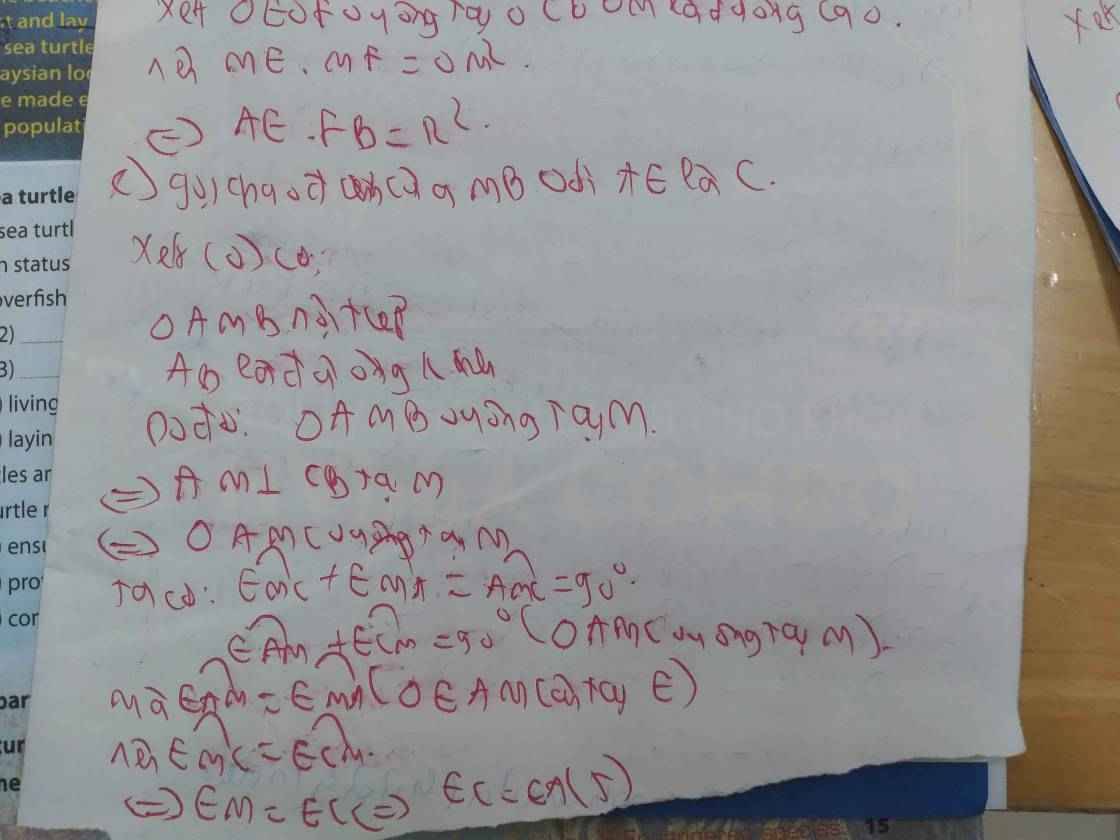 Xét △EOF vuông tại O có OM là đường cao.
nên ME . MF = OM².
<=> AE . FB = R².
c) gọi giao điểm của MB với AE là C.
Xét (O) có:
△AMB nội tiếp
AB là đường kính
Do đó: △AMB vuông tại M.
=> AM ⊥ CB tại M
=> △AMC vuông tại M
Ta có: EMC + EMA = AMC = 90°.
EAM + ECM = 90° (△AMC vuông tại M).
mà EAM = EMA (△EAM cân tại E)
nên EMC = ECM.
=> EM = EC <=> EC = EA (5)
st and lay
sea turtle
aysian lo
e made e
populati
a turtle
sea turtl
n status
overfish
2)
3)
living
layin
les ar
urtle r
ensu
pro
cor
par
tur
ne
Xét
15